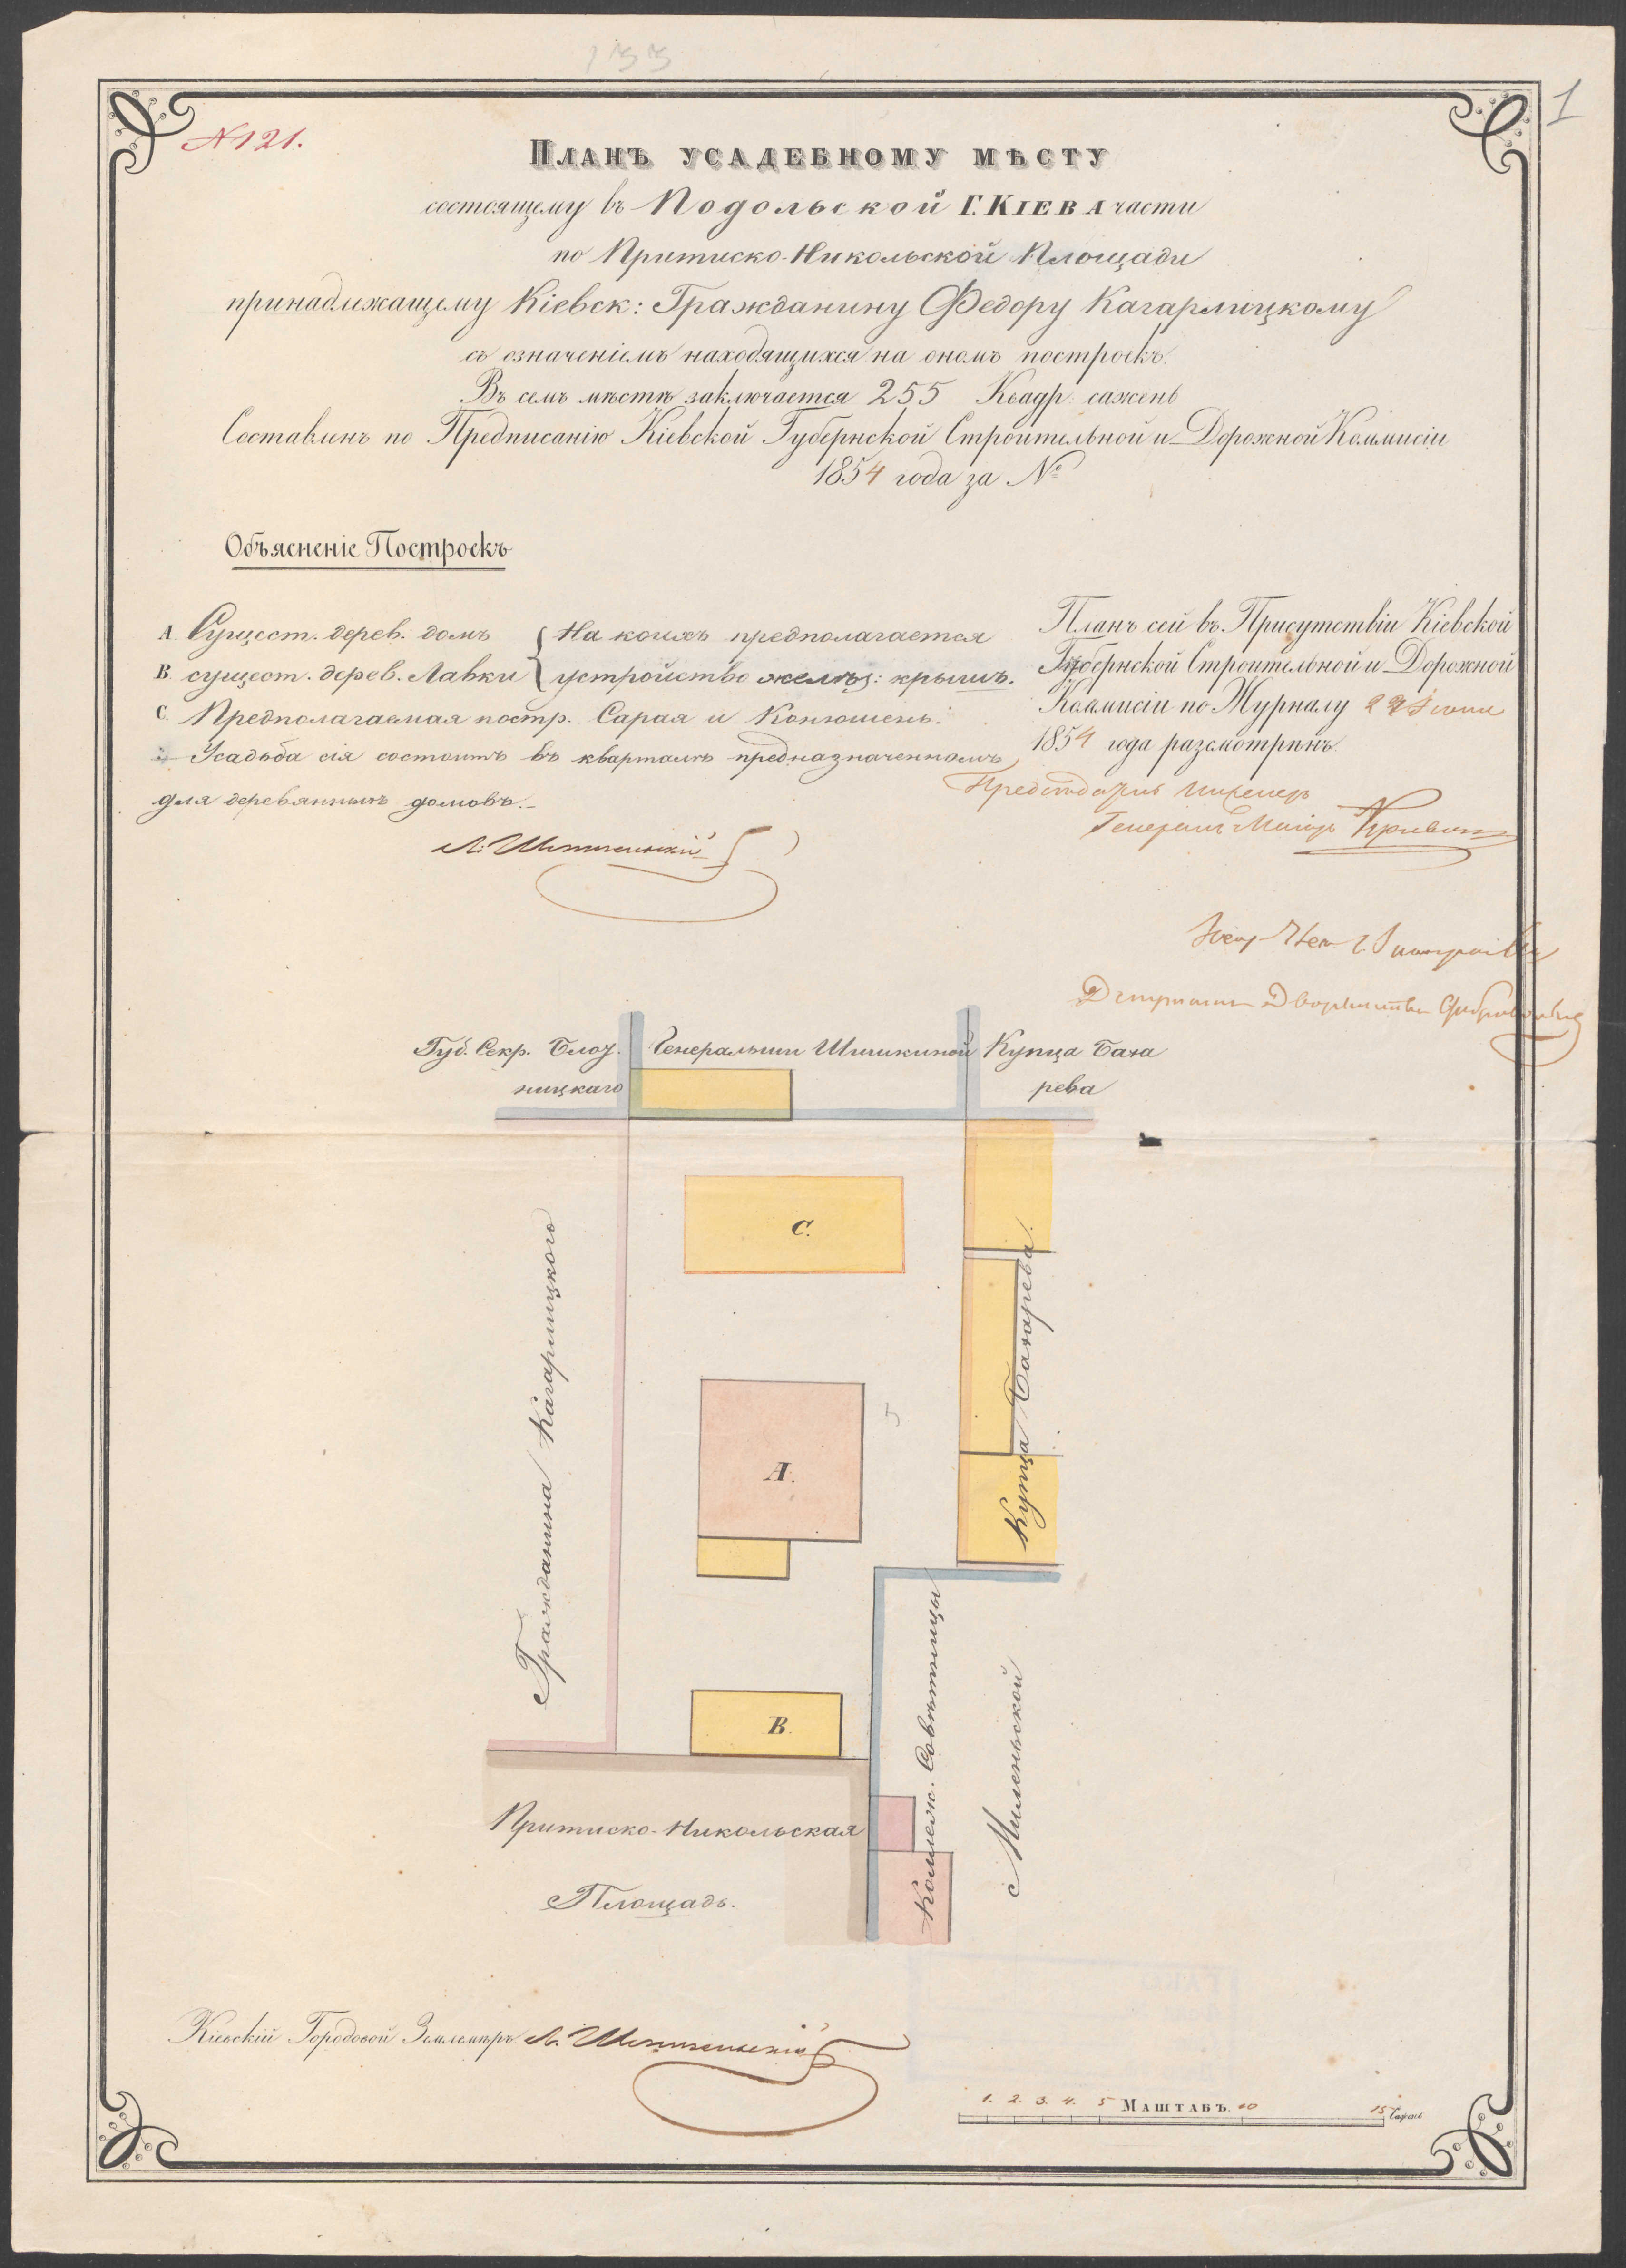 133
1
№ 121.
Планъ усадебному мѣсту
состоящему въ Подольской Г. Кіева части
по Притиско-Никольской Площади
принадлежащему Кіевск: Гражданину Федору Кагарлицкому
съ означеніемъ находящихся на ономъ построекъ.
Въ семъ мѣстѣ заключается 255 Квадр. сажень
Составленъ по Предписанію Кіевской Губернской Строительной и Дорожной Коммисіи
1854 года за №
Объясненіе Построекъ
А. Сущест. дерев. домъ { На коихъ предполагается
В. сущест. дерев. Лавки { устройство желѣз: крышъ.
С. Предполагаемая постр. Сарая и Конюшень.
Усадьба сія состоитъ въ кварталѣ предназначенномъ
для деревянныхъ домовъ.
Планъ сей въ Присутствіи Кіевской
Губернской Строительной и Дорожной
Коммисіи по Журналу 22 Іюня
1854 года разсмотрѣнъ.
Генералъ Маіоръ
Губ. Секр. Блоз.
ницкаго
Генеральши Шишкиной
Купца Баха
рева
С.
А.
В.
Гражданина Кагарлицкого
Купца Бахарева.
Коллеж. Совѣтницы
Миленьской
Притиско-Никольская
Площадь.
Кіевскій Городовой Землемѣръ
1. 2. 3. 4. 5 Маштабъ. 10 15 Сажень